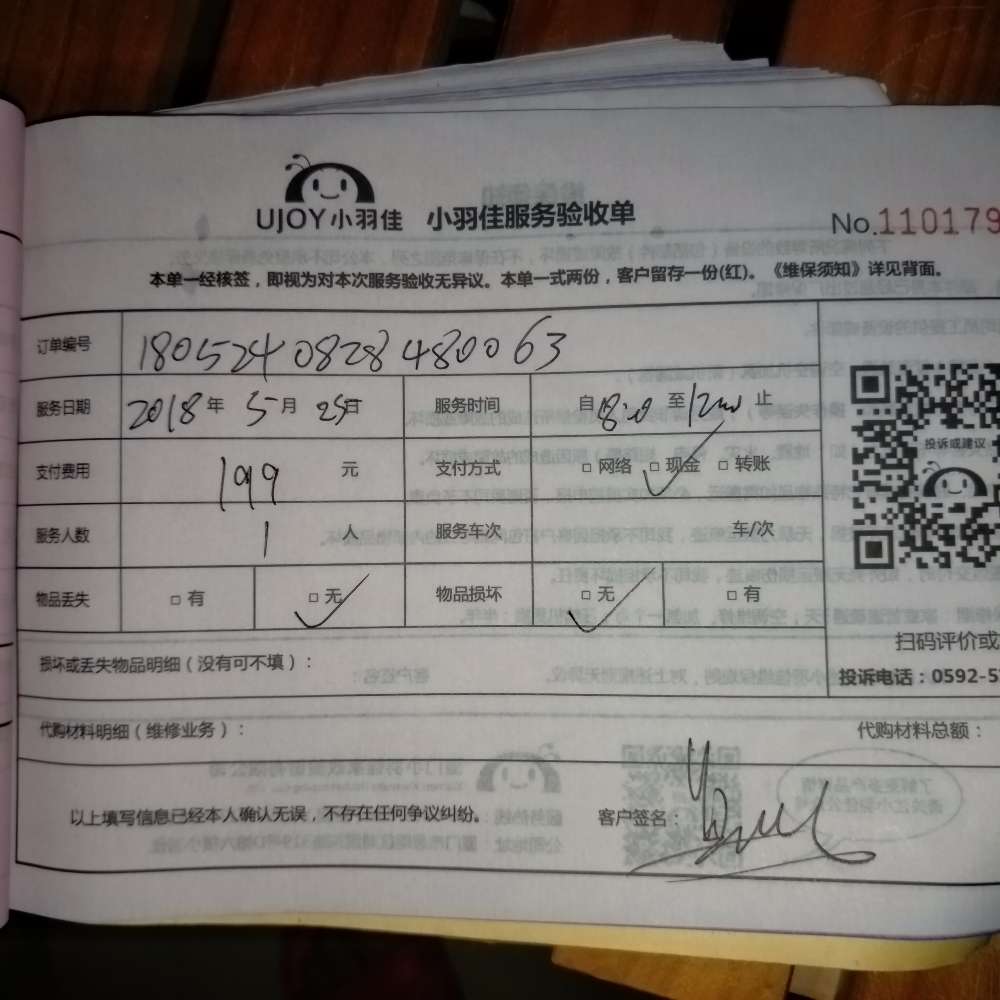 UJOY小羽佳 小羽佳服务验收单
No.110179
本单一经核签，即视为对本次服务验收无异议。本单一式两份，客户留存一份(红)。《维保须知》详见背面。
订单编号 1805240828480063
服务日期 2018年5月25日 服务时间 自 至 止
支付费用 199 元 支付方式 □网络 □现金 □转账
服务人数 1 人 服务车次 车/次
物品丢失 □有 □无 物品损坏 □无 □有
投诉或建议
扫码评价或
投诉电话：0592-5
损坏或丢失物品明细（没有可不填）：
代购材料明细（维修业务）： 代购材料总额：
以上填写信息已经本人确认无误，不存在任何争议纠纷。 客户签名：